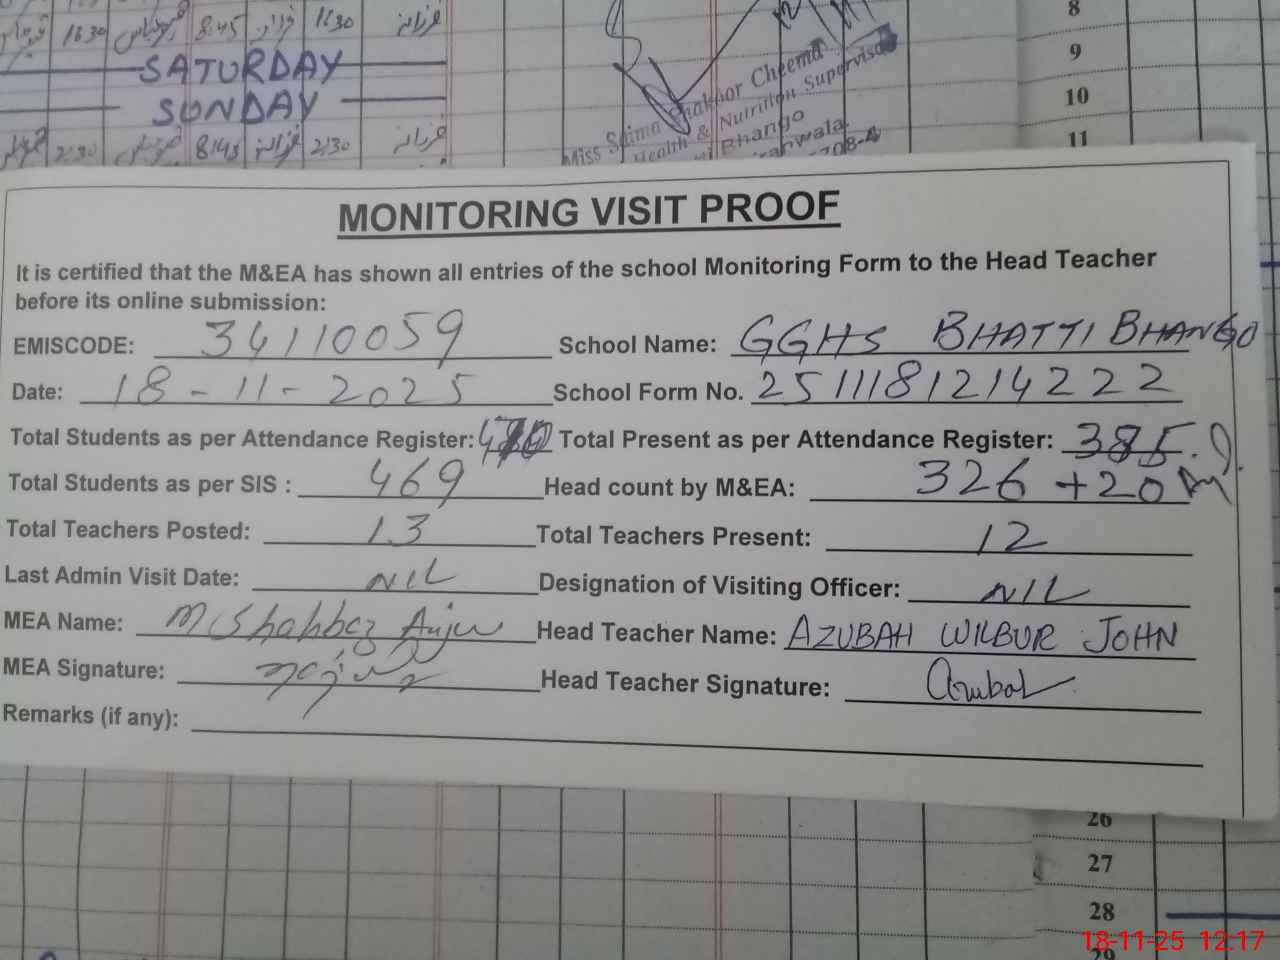 1630 8:45 1630
SATURDAY
SUNDAY
2:30 8:45 2:30
Miss Saima Shakoor Cheema
Health & Nutrition Supervisor
Bhango
8
9
10
11
MONITORING VISIT PROOF
It is certified that the M&EA has shown all entries of the school Monitoring Form to the Head Teacher
before its online submission:
EMISCODE: 34110059 School Name: GGHS BHATTI BHANGO
Date: 18-11-2025 School Form No. 2511181214222
Total Students as per Attendance Register: Total Present as per Attendance Register: 385
Total Students as per SIS : 469 Head count by M&EA: 326 +20
Total Teachers Posted: 13 Total Teachers Present: 12
Last Admin Visit Date: NIL Designation of Visiting Officer: NIL
MEA Name: M Shahbaz Anjum Head Teacher Name: AZUBAH WILBUR JOHN
MEA Signature: Head Teacher Signature: Azubah
Remarks (if any):
26
27
28
29
18-11-25 12:17